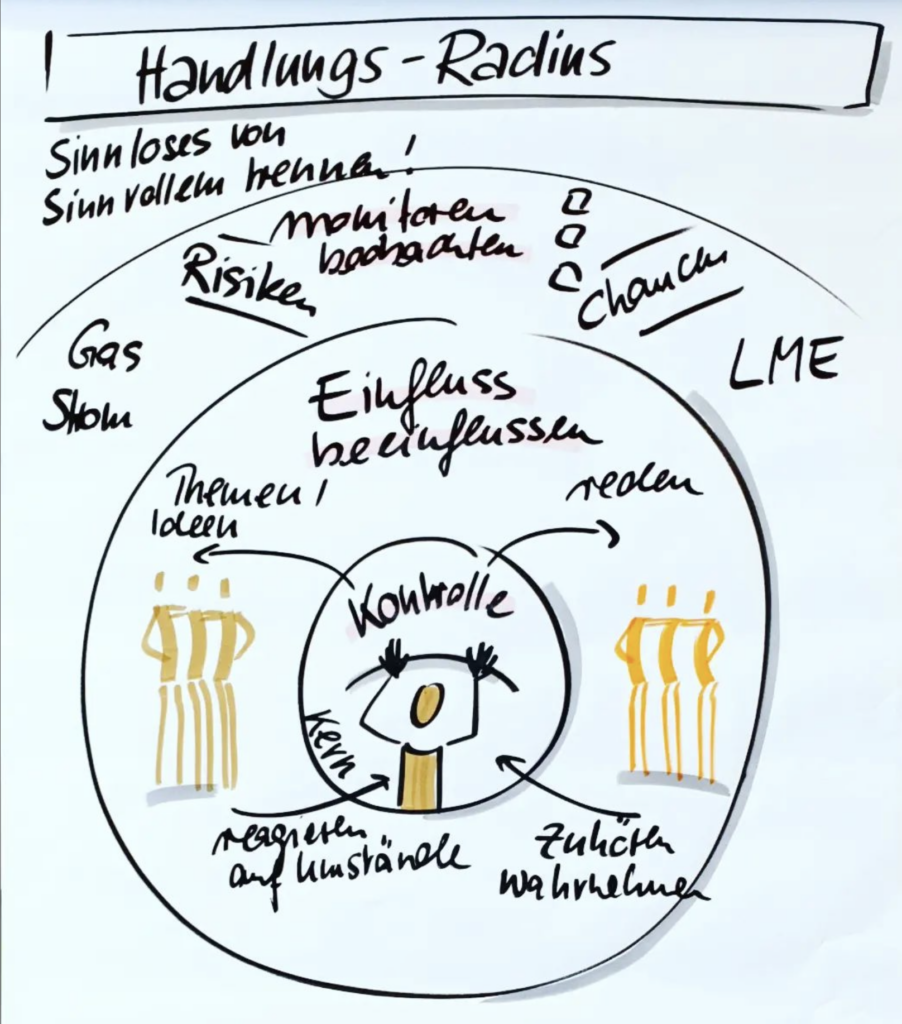 Handlungs-Radius
Sinnloses von
Sinnvollem trennen!
monitoren
beobachten
Risiken
Chancen
Gas
Strom
LME
Einfluss
beeinflussen
Themen/
Ideen
reden
Kontrolle
Kern
reagieren
auf Umstände
Zuhören
Wahrnehmen